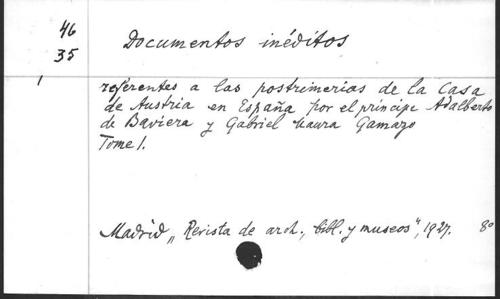 46
35
Documentos inéditos
1
referentes a las postrimerias de la Casa
de Austria en España por el príncipe Adalberto
de Baviera y Gabriel Maura Gamazo
Tome 1.
Madrid, "Revista de arch., bibl. y museos", 1927. 8°